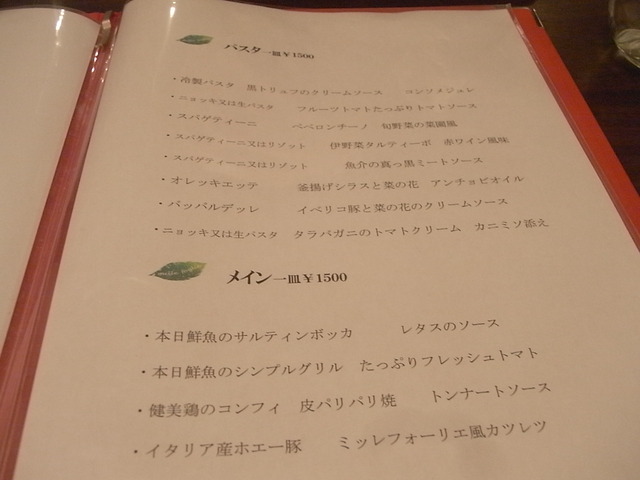 パスタ一皿¥1500
・冷製パスタ 黒トリュフのクリームソース コンソメジュレ
・ニョッキ又は生パスタ フルーツトマトたっぷりトマトソース
・スパゲティーニ ペペロンチーノ 旬野菜の菜園風
・スパゲティーニ又はリゾット 伊野菜タルティーボ 赤ワイン風味
・スパゲティーニ又はリゾット 魚介の真っ黒ミートソース
・オレッキエッテ 釜揚げシラスと菜の花 アンチョビオイル
・パッパルデッレ イベリコ豚と菜の花のクリームソース
・ニョッキ又は生パスタ タラバガニのトマトクリーム カニミソ添え
メイン一皿¥1500
・本日鮮魚のサルティンボッカ レタスのソース
・本日鮮魚のシンプルグリル たっぷりフレッシュトマト
・健美鶏のコンフィ 皮パリパリ焼 トンナートソース
・イタリア産ホエー豚 ミッレフォーリエ風カツレツ